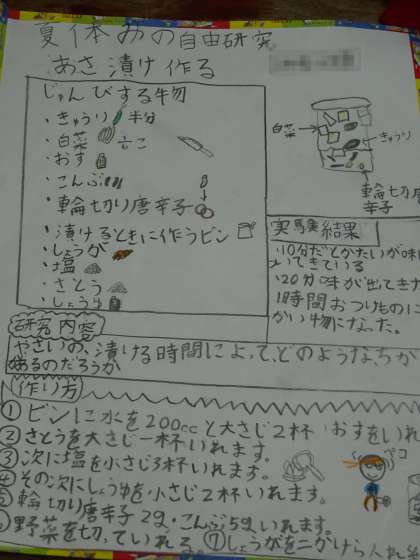 夏休みの自由研究
あさ漬け作る
じゅんびする物
・きゅうり 半分
・白菜 1/6こ
・おす
・こんぶ
・輪切り唐辛子
・漬けるときに作うビン
・しょうが
・塩
・さとう
・しょうゆ
白菜
きゅうり
輪切り唐
辛子
実験結果
・10分だとかたいが味が
ついてきている
・20分味が出てきた
1時間おつけものに
かい物になった。
研究内容
やさいの、漬ける時間によって、どのようなちが
あるのだろうか
作り方
① ビンに水を200ccと大さじ2杯 おすをいれ
② さとうを大さじ一杯いれます。
③ 次に塩を小さじ3杯いれます。
④ その次にしょうゆを小さじ2杯いれます。
⑤ 輪切り唐辛子2g・こんぶ5gいれます。
⑥ 野菜を切っていれる ⑦しょうがを